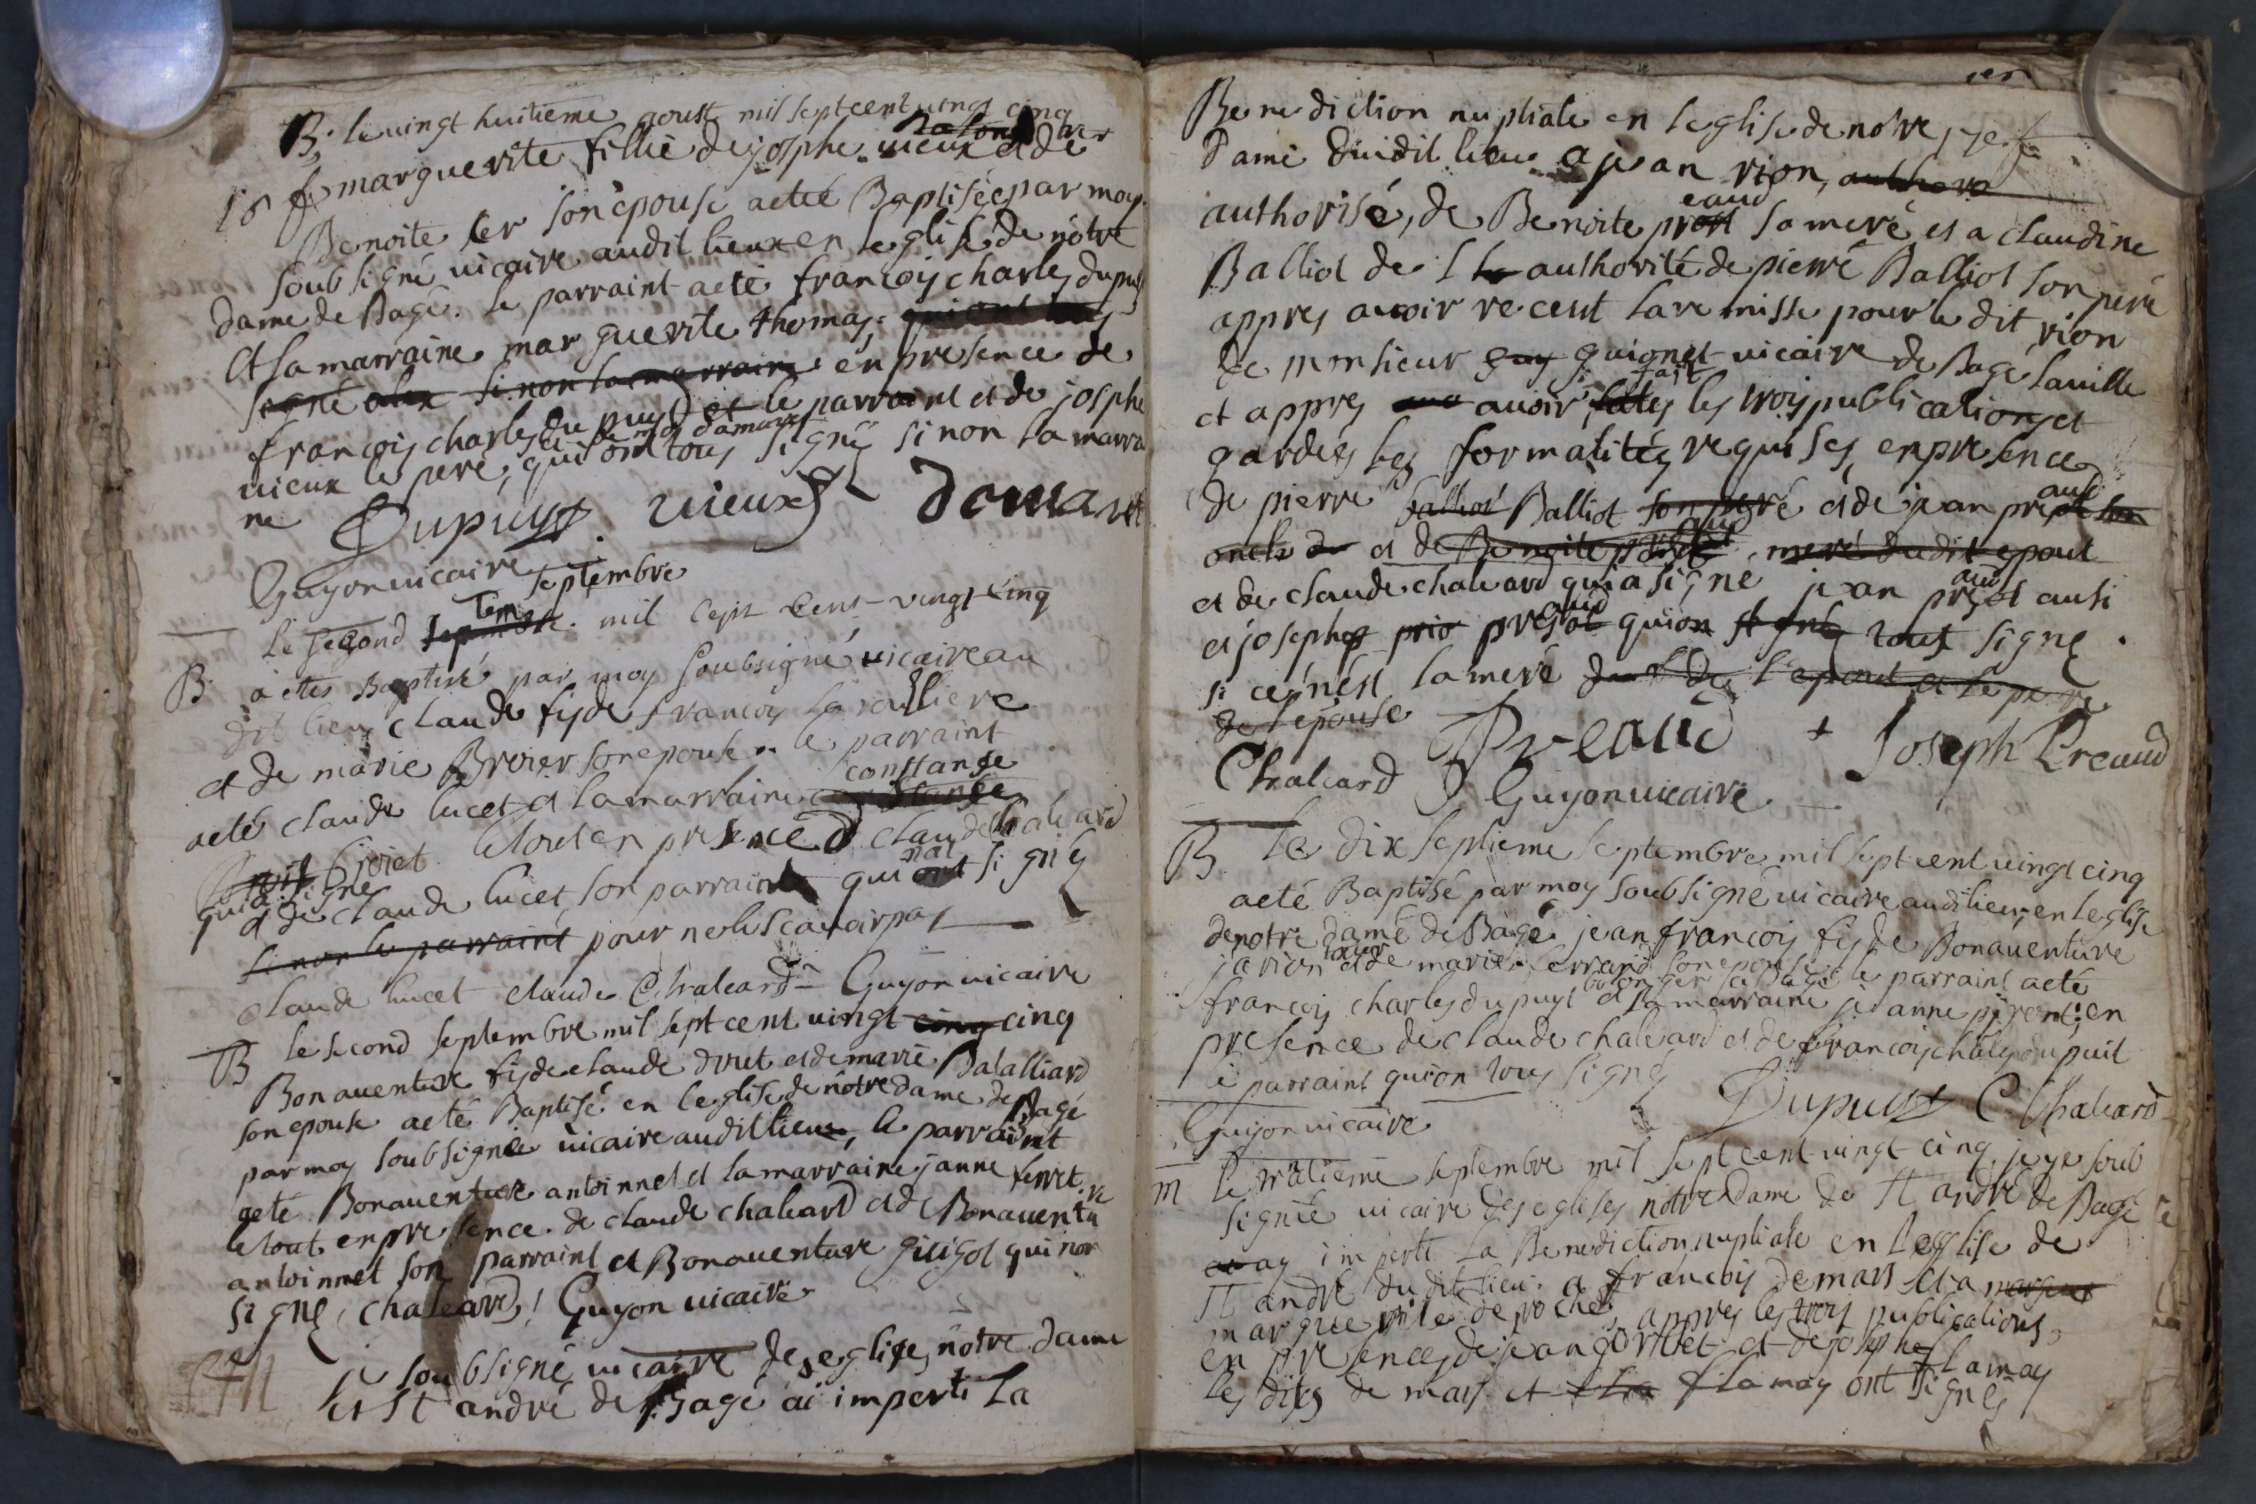 B. le vingt huitieme aoust mil sept cent vingt cinq
marguerite fillie de josphe vieux et de
Benoite ler son épouse a eteé Baptiséé par moy
soub signé vicaire audit lieux en leglise de nôtre
dame de Bagé. le parraint a eté francois charles dupuy
et la marraine marguerite thomas,
signé si non la marraine en presence de
francois charles du puys et le parraint et de josphe
vieux le peré, qui ont tous signés si non la marrai
ne Dupuys vieux Damaret
Guyon vicaire
septembre
le second mil sept cent vingt cinq
B a eté Baptisé par moy soubsigné vicaire au
dit lieu claude fis de francois
et de marie Broier son epouse le parraint
a eté claude lucet et la marraine constance
joiet le tout en presence d claude chaleard
qui a signé
et de claude lucet son parraint qui nont signés
si non le parraint pour ne le scavoir pas
claude lucet claude Chaleard Guyon vicaire
B le second septembre mil sept cent vingt cinq cinq
Bonaventure fis de claude drut et de marie Batalliard
son epouse a eté Baptisé en leglise de nôtre dame de Bagé
par moy soub signée vicaire audit lieux, le parraint
a eté Bonaventure antoinnet et la marraine janne ferret
le tout en presence de claude chaleard et de Bonaventure
antoinnet son parraint et Bonaventure guigot qui non
signé chaleard, Guyon vicaire
je soubsigné vicaire des eglises nôtre dame
et st andré de Bagé ai imperti La
Benediction nuptiale en leglise de nôtre
Dame dudit lieu a jean rion,
authorisé, de Benoite preaud sa meré et a claudine
Balliot de l authorité de pierré Balliot son peré
appres avoir receut la remisse pour le dit rion
de monsieur guignet vicaire de Bagé laville
et appres avoir fait les trois publications et
gardées les formalités requises, en presence
de pierré balliot Balliot son peré et de jean preaud
oncle et de Benoite meré dudit epout
et de claude chaleard qui a signé jean preaud ausi
et joseph preaud qui on tout signé
si ce n'ést la meré de l'epout et le pere
de l'épouse
Chaleard Preaud + Joseph Preaud
Guyon vicaire
B le dix septieme septembre mil sept cent vingt cinq
a eté Baptisé par moy soubsigné vicaire audit lieu, en leglise
de notre dame de Bagé jean francois fis de Bonaventure
javion et de marie ferrand son epouse le parraint a eté
francois charles dupuyt et la marraine jeanne en
presence de claude chaleard et de francois chales dupuit
le parraint qui on tous signés
Guyon vicaire Dupuys C Chaleard
m le septembre mil sept cent vingt cinq, je soub
signée vicaire des eglises nôtre Dame de st andré de Bagé
ay imperti La Benediction nuptiale en leglise de
st andré du dit lieu a francois demars et a
marguerite de roche, appres les trois publications,
en presences de jean gorrivet et de josephe flamay
les dits de mars et flamay ont signés